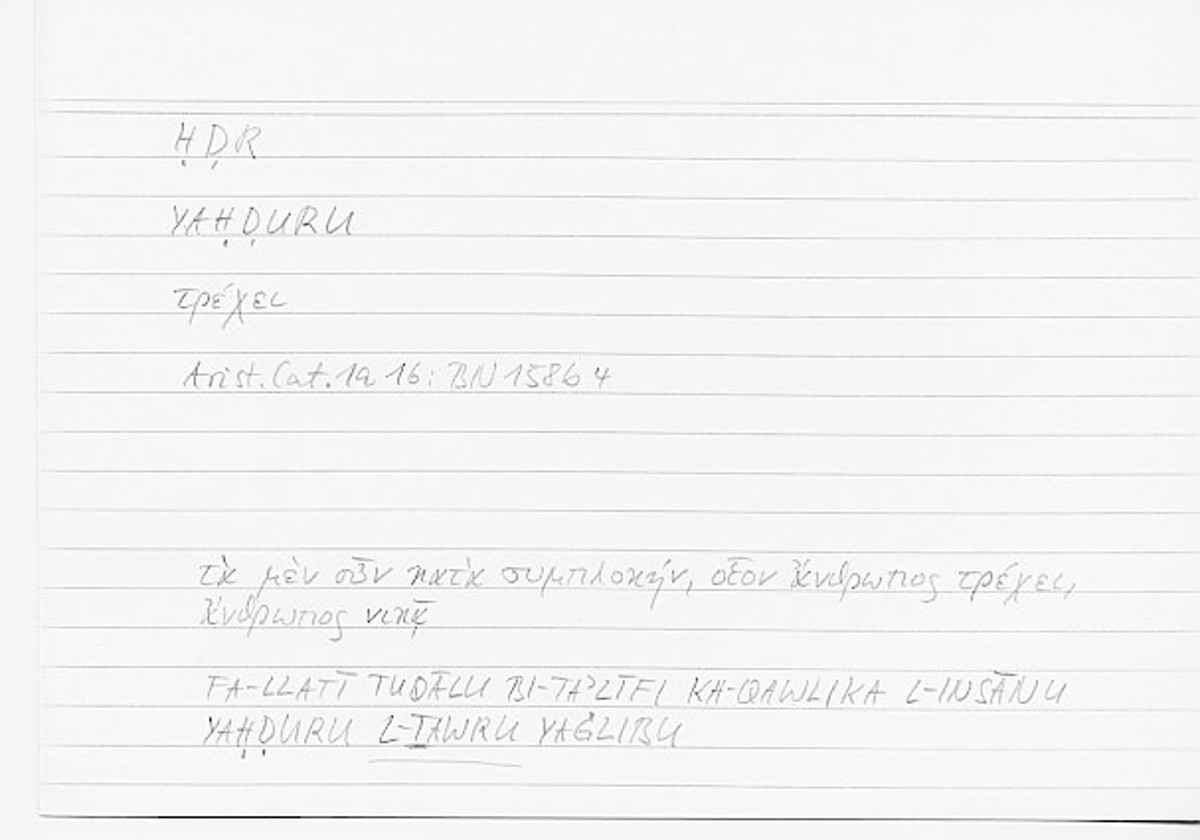 ḤḌR
YAḤḌURU
τρέχει
Arist. Cat. 1a 16: BN 1586 4
τὰ μὲν οὖν κατὰ συμπλοκήν, οἷον ἄνθρωπος τρέχει,
ἄνθρωπος νικᾷ
FA-LLATĪ TUQĀLU BI-TAʾLĪFI KA-QAWLIKA L-INSĀNU
YAḤḌURU L-ṮAWRU YAĠLIBU